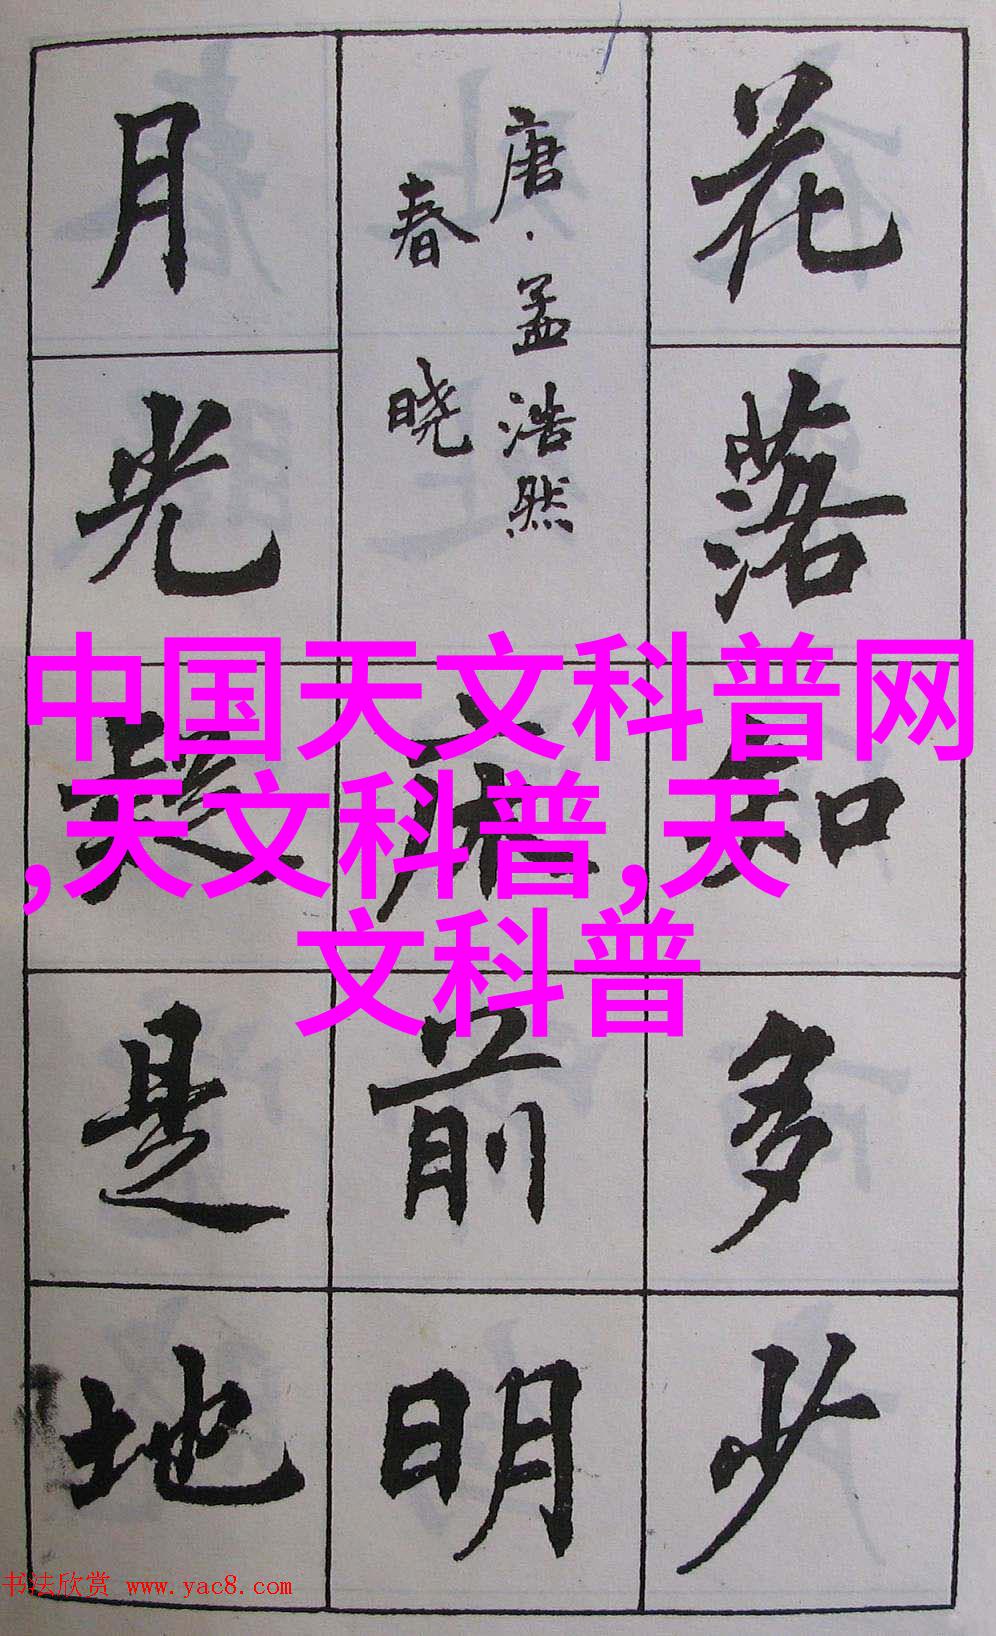 花落知多少
唐·孟浩然
春晓
床前明
月光疑是地
中国天文科普网
,天文科普,天
文科普
书法欣赏 www.yac8.com